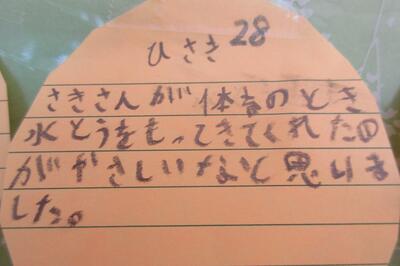 ひさき 28
さきさんが体育のとき
水とうをもってきてくれたの
がやさしいなと思いま
した。